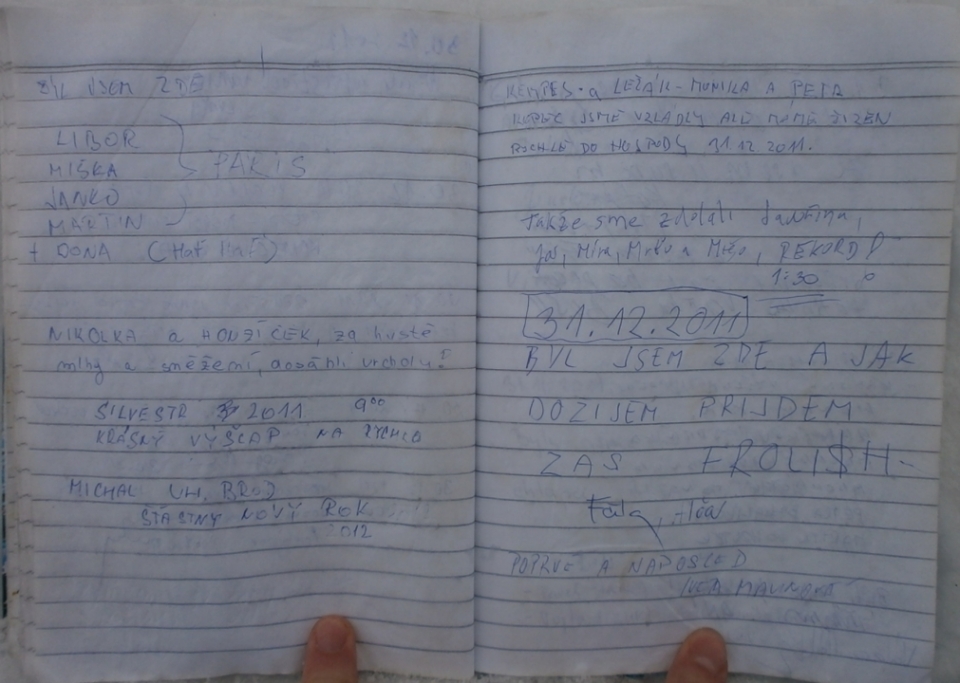 BYL JSEM ZDE
LIBOR
MIŠKA
PAKIS
JANKO
MARTIN
+ DONA (Haf Haf)
NIKOLKA a HONZÍČEK, za husté
mlhy a sněžení, dosáhli vrcholu!
SILVESTR 2011 9⁰⁰
KRÁSNÝ VÝŠLAP NA RYCHLO
MICHAL UH. BROD
ŠŤASTNÝ NOVÝ ROK
2012
KEMPES a LEŽÁK - MONIKA A PETR
KOPEC JSME VZLÁDLY ALE MÁME ŽIZEŇ
RYCHLE DO HOSPODY 31.12 2011.
Takže sme zdolali Javořina,
Mira, a REKORD!
1:30
31.12.2011
BYL JSEM ZDE A JAK
DOZIJEM PRIJDEM
ZAS FROLI$H-
POPRVÉ A NAPOSLED
IVETA